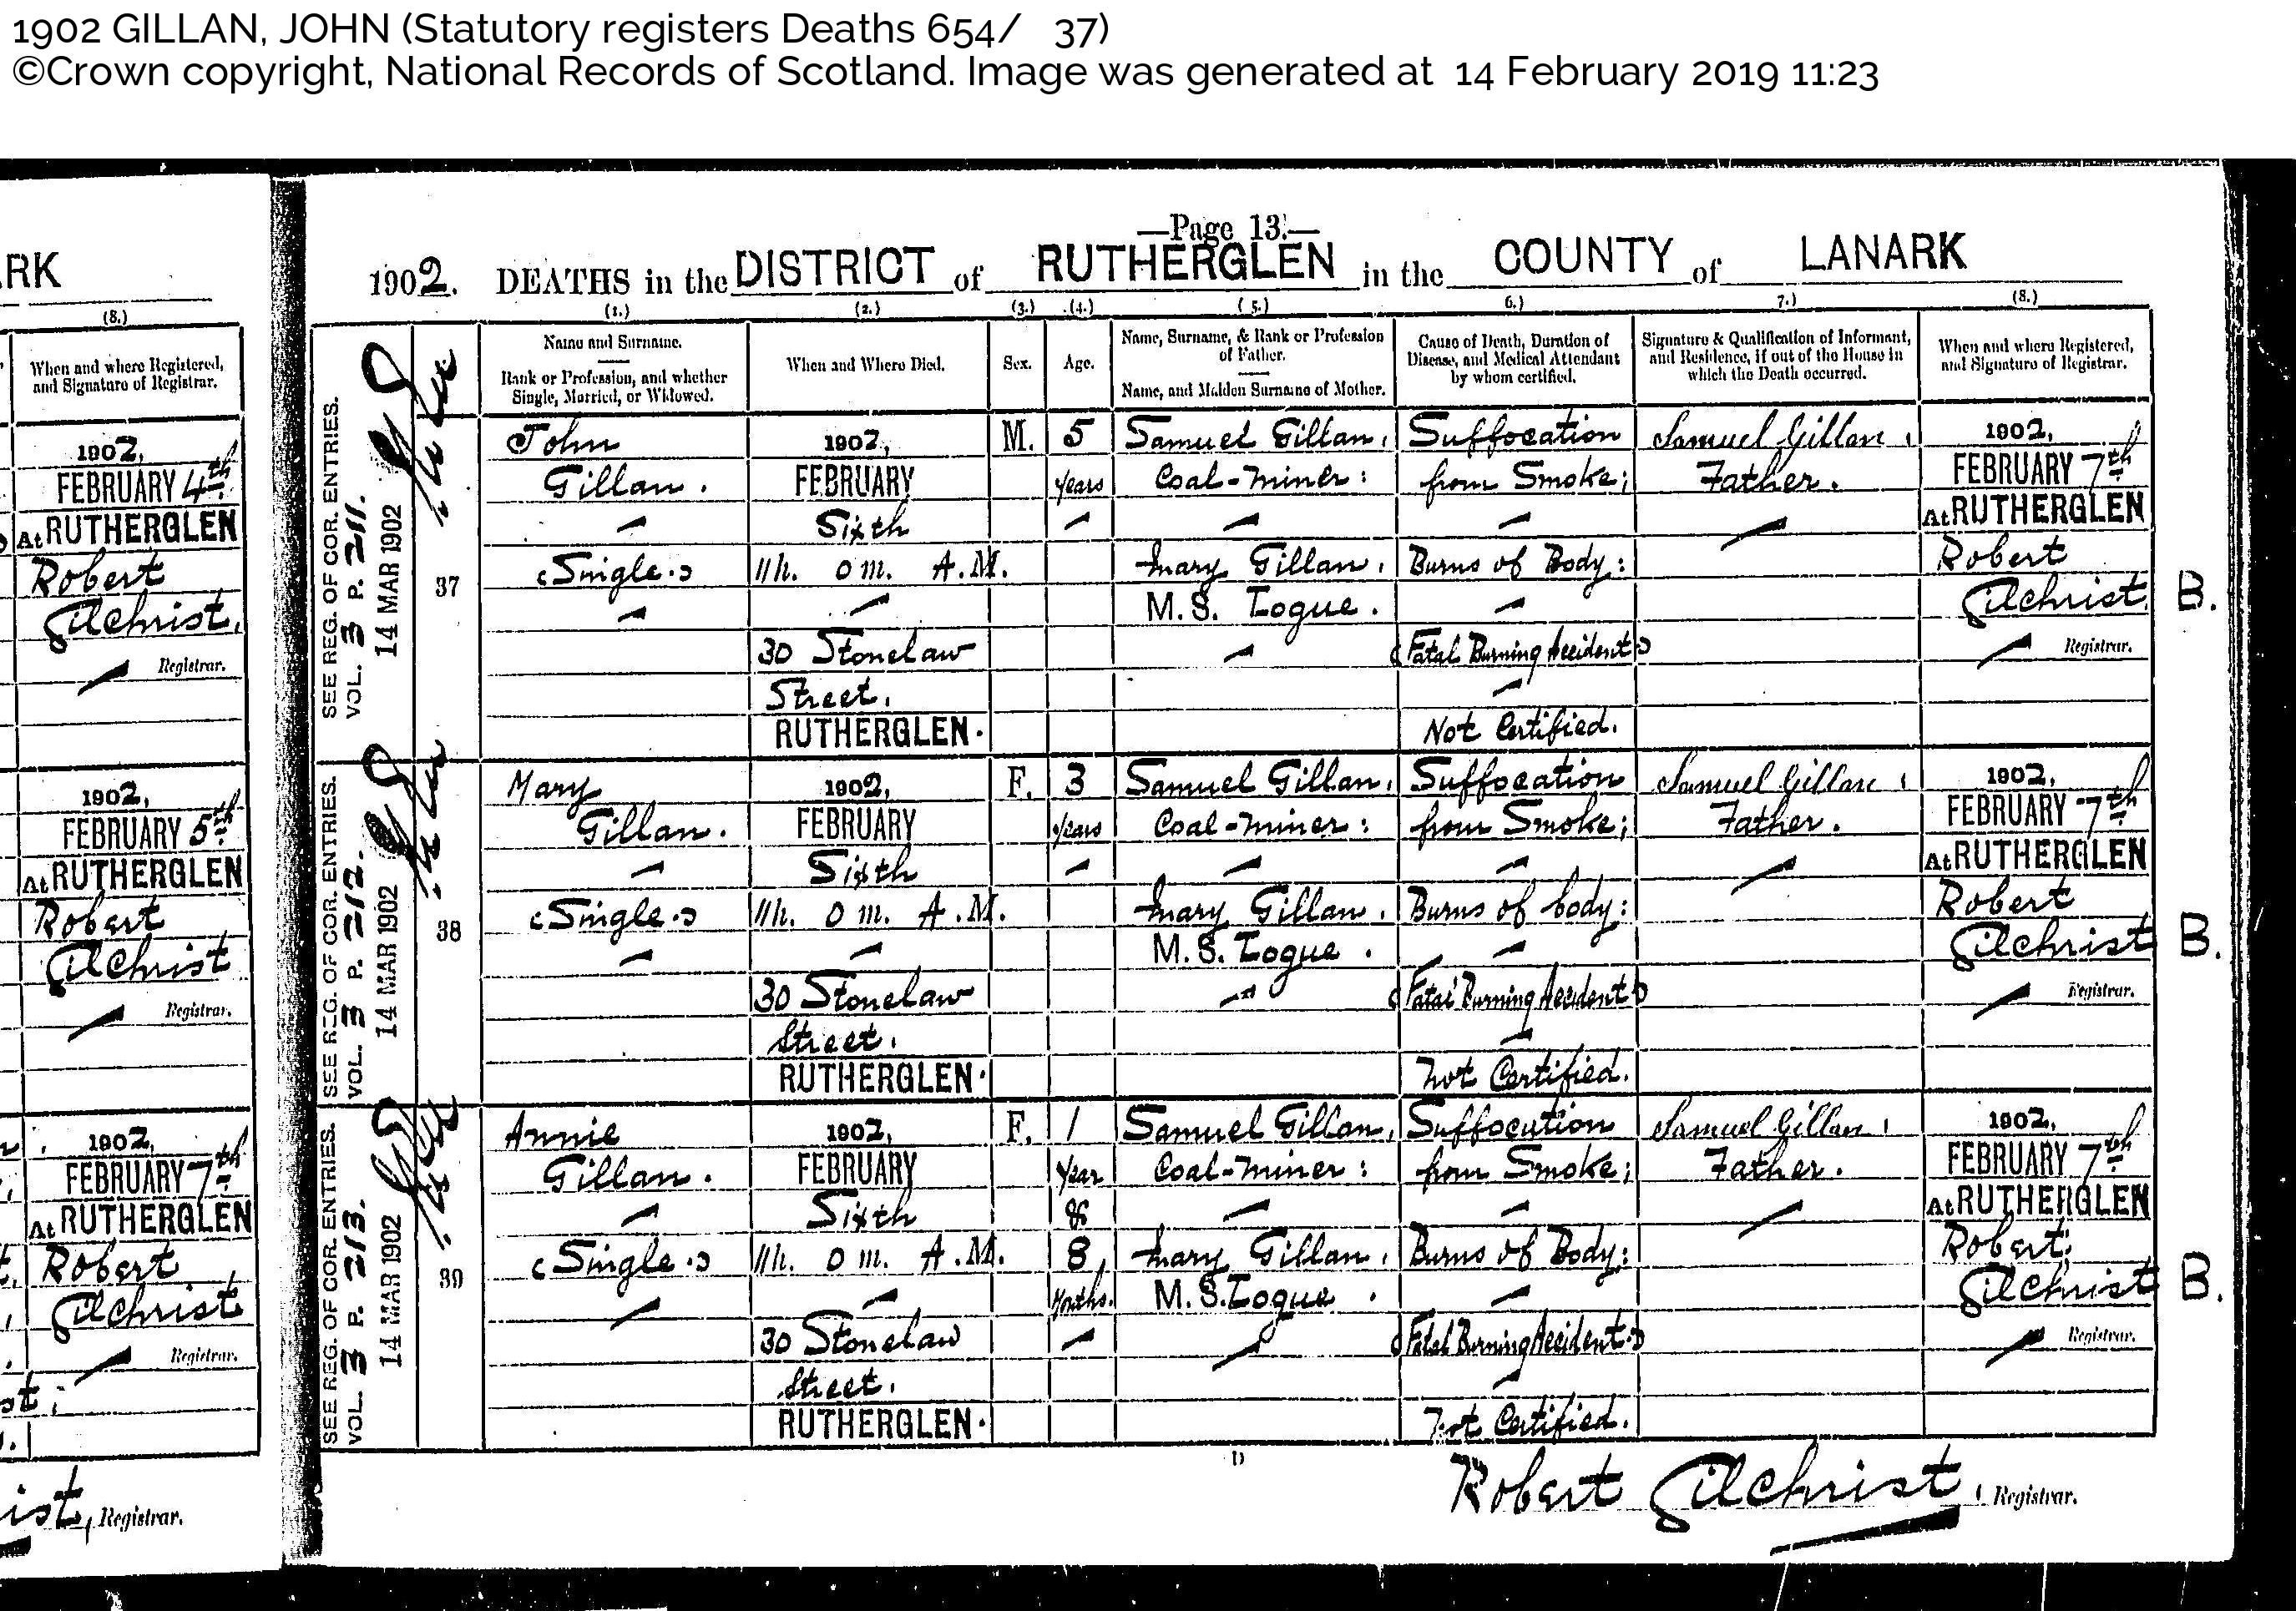 1902 GILLAN, JOHN (Statutory registers Deaths 654/ 37)
©Crown copyright, National Records of Scotland. Image was generated at 14 February 2019 11:23
—Page 13.—
1902. DEATHS in the DISTRICT of RUTHERGLEN in the COUNTY of LANARK
(1.) (2.) (3.) (4.) (5.) 6.) 7.) (8.)
Name and Surname.
Rank or Profession, and whether
Single, Married, or Widowed.
When and Where Died.
Sex.
Age.
Name, Surname, & Rank or Profession
of Father.
Name, and Maiden Surname of Mother.
Cause of Death, Duration of
Disease, and Medical Attendant
by whom certified.
Signature & Qualification of Informant,
and Residence, if out of the House in
which the Death occurred.
When and where Registered,
and Signature of Registrar.
SEE REG. OF COR. ENTRIES.
VOL. 3 P. 211.
14 MAR 1902
37
John
Gillan.
(Single.)
1902,
FEBRUARY
Sixth
11h. 0m. A.M.
30 Stonelaw
Street.
RUTHERGLEN.
M.
5
years
Samuel Gillan,
Coal-miner:
Mary Gillan,
M.S. Logue.
Suffocation
from Smoke;
Burns of Body:
(Fatal Burning Accident)
Not Certified.
Samuel Gillan,
Father.
1902,
FEBRUARY 7th
At RUTHERGLEN
Robert
Gilchrist
Registrar.
B.
SEE REG. OF COR. ENTRIES.
VOL. 3 P. 212.
14 MAR 1902
38
Mary
Gillan.
(Single.)
1902,
FEBRUARY
Sixth
11h. 0m. A.M.
30 Stonelaw
Street.
RUTHERGLEN.
F.
3
years
Samuel Gillan,
Coal-miner:
Mary Gillan,
M.S. Logue.
Suffocation
from Smoke;
Burns of body:
(Fatal Burning Accident)
Not Certified.
Samuel Gillan,
Father.
1902,
FEBRUARY 7th
At RUTHERGLEN
Robert
Gilchrist
Registrar.
B.
SEE REG. OF COR. ENTRIES.
VOL. 3 P. 213.
14 MAR 1902
39
Annie
Gillan.
(Single.)
1902,
FEBRUARY
Sixth
11h. 0m. A.M.
30 Stonelaw
Street.
RUTHERGLEN.
F.
1
Year
&
8
Months.
Samuel Gillan,
Coal-miner:
Mary Gillan,
M.S. Logue.
Suffocation
from Smoke;
Burns of Body:
(Fatal Burning Accident)
Not Certified.
Samuel Gillan,
Father.
1902,
FEBRUARY 7th
At RUTHERGLEN
Robert
Gilchrist
Registrar.
B.
Robert Gilchrist, Registrar.
RK
(8.)
When and where Registered,
and Signature of Registrar.
1902,
FEBRUARY 4th
At RUTHERGLEN
Robert
Gilchrist,
Registrar.
1902,
FEBRUARY 5th
At RUTHERGLEN
Robert
Gilchrist
Registrar.
1902,
FEBRUARY 7th
At RUTHERGLEN
Robert
Gilchrist
Registrar.
ist, Registrar.